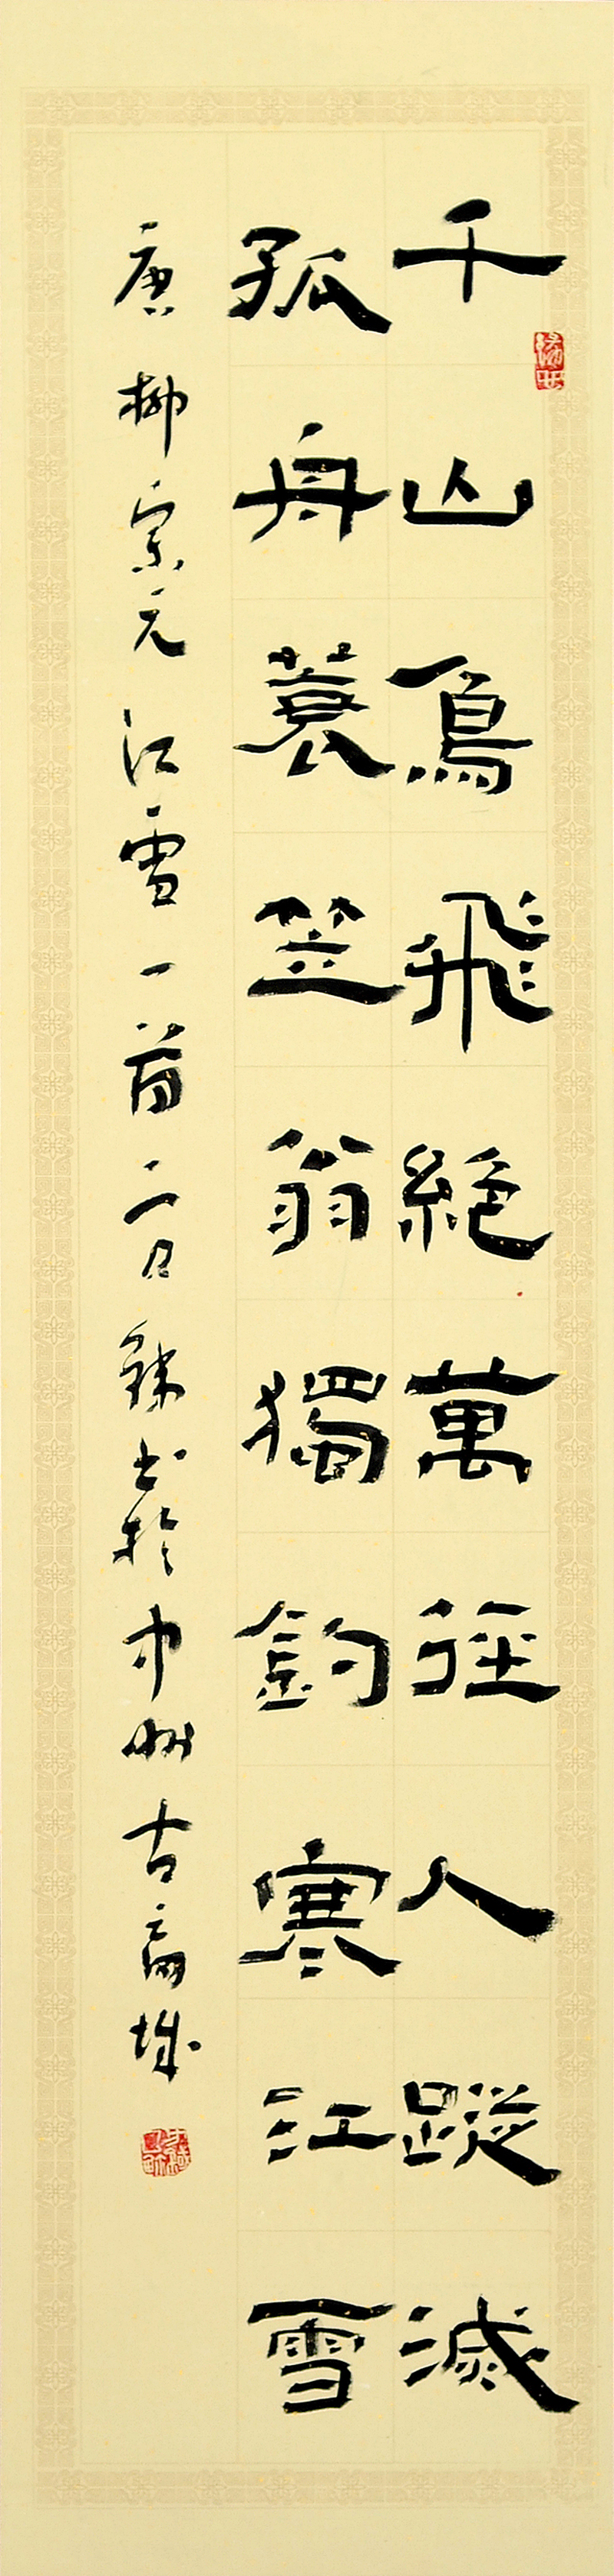 千山鳥飛絕萬徑人蹤滅
孤舟蓑笠翁獨釣寒江雪
唐柳宗元江雪一首 書於 州古 城